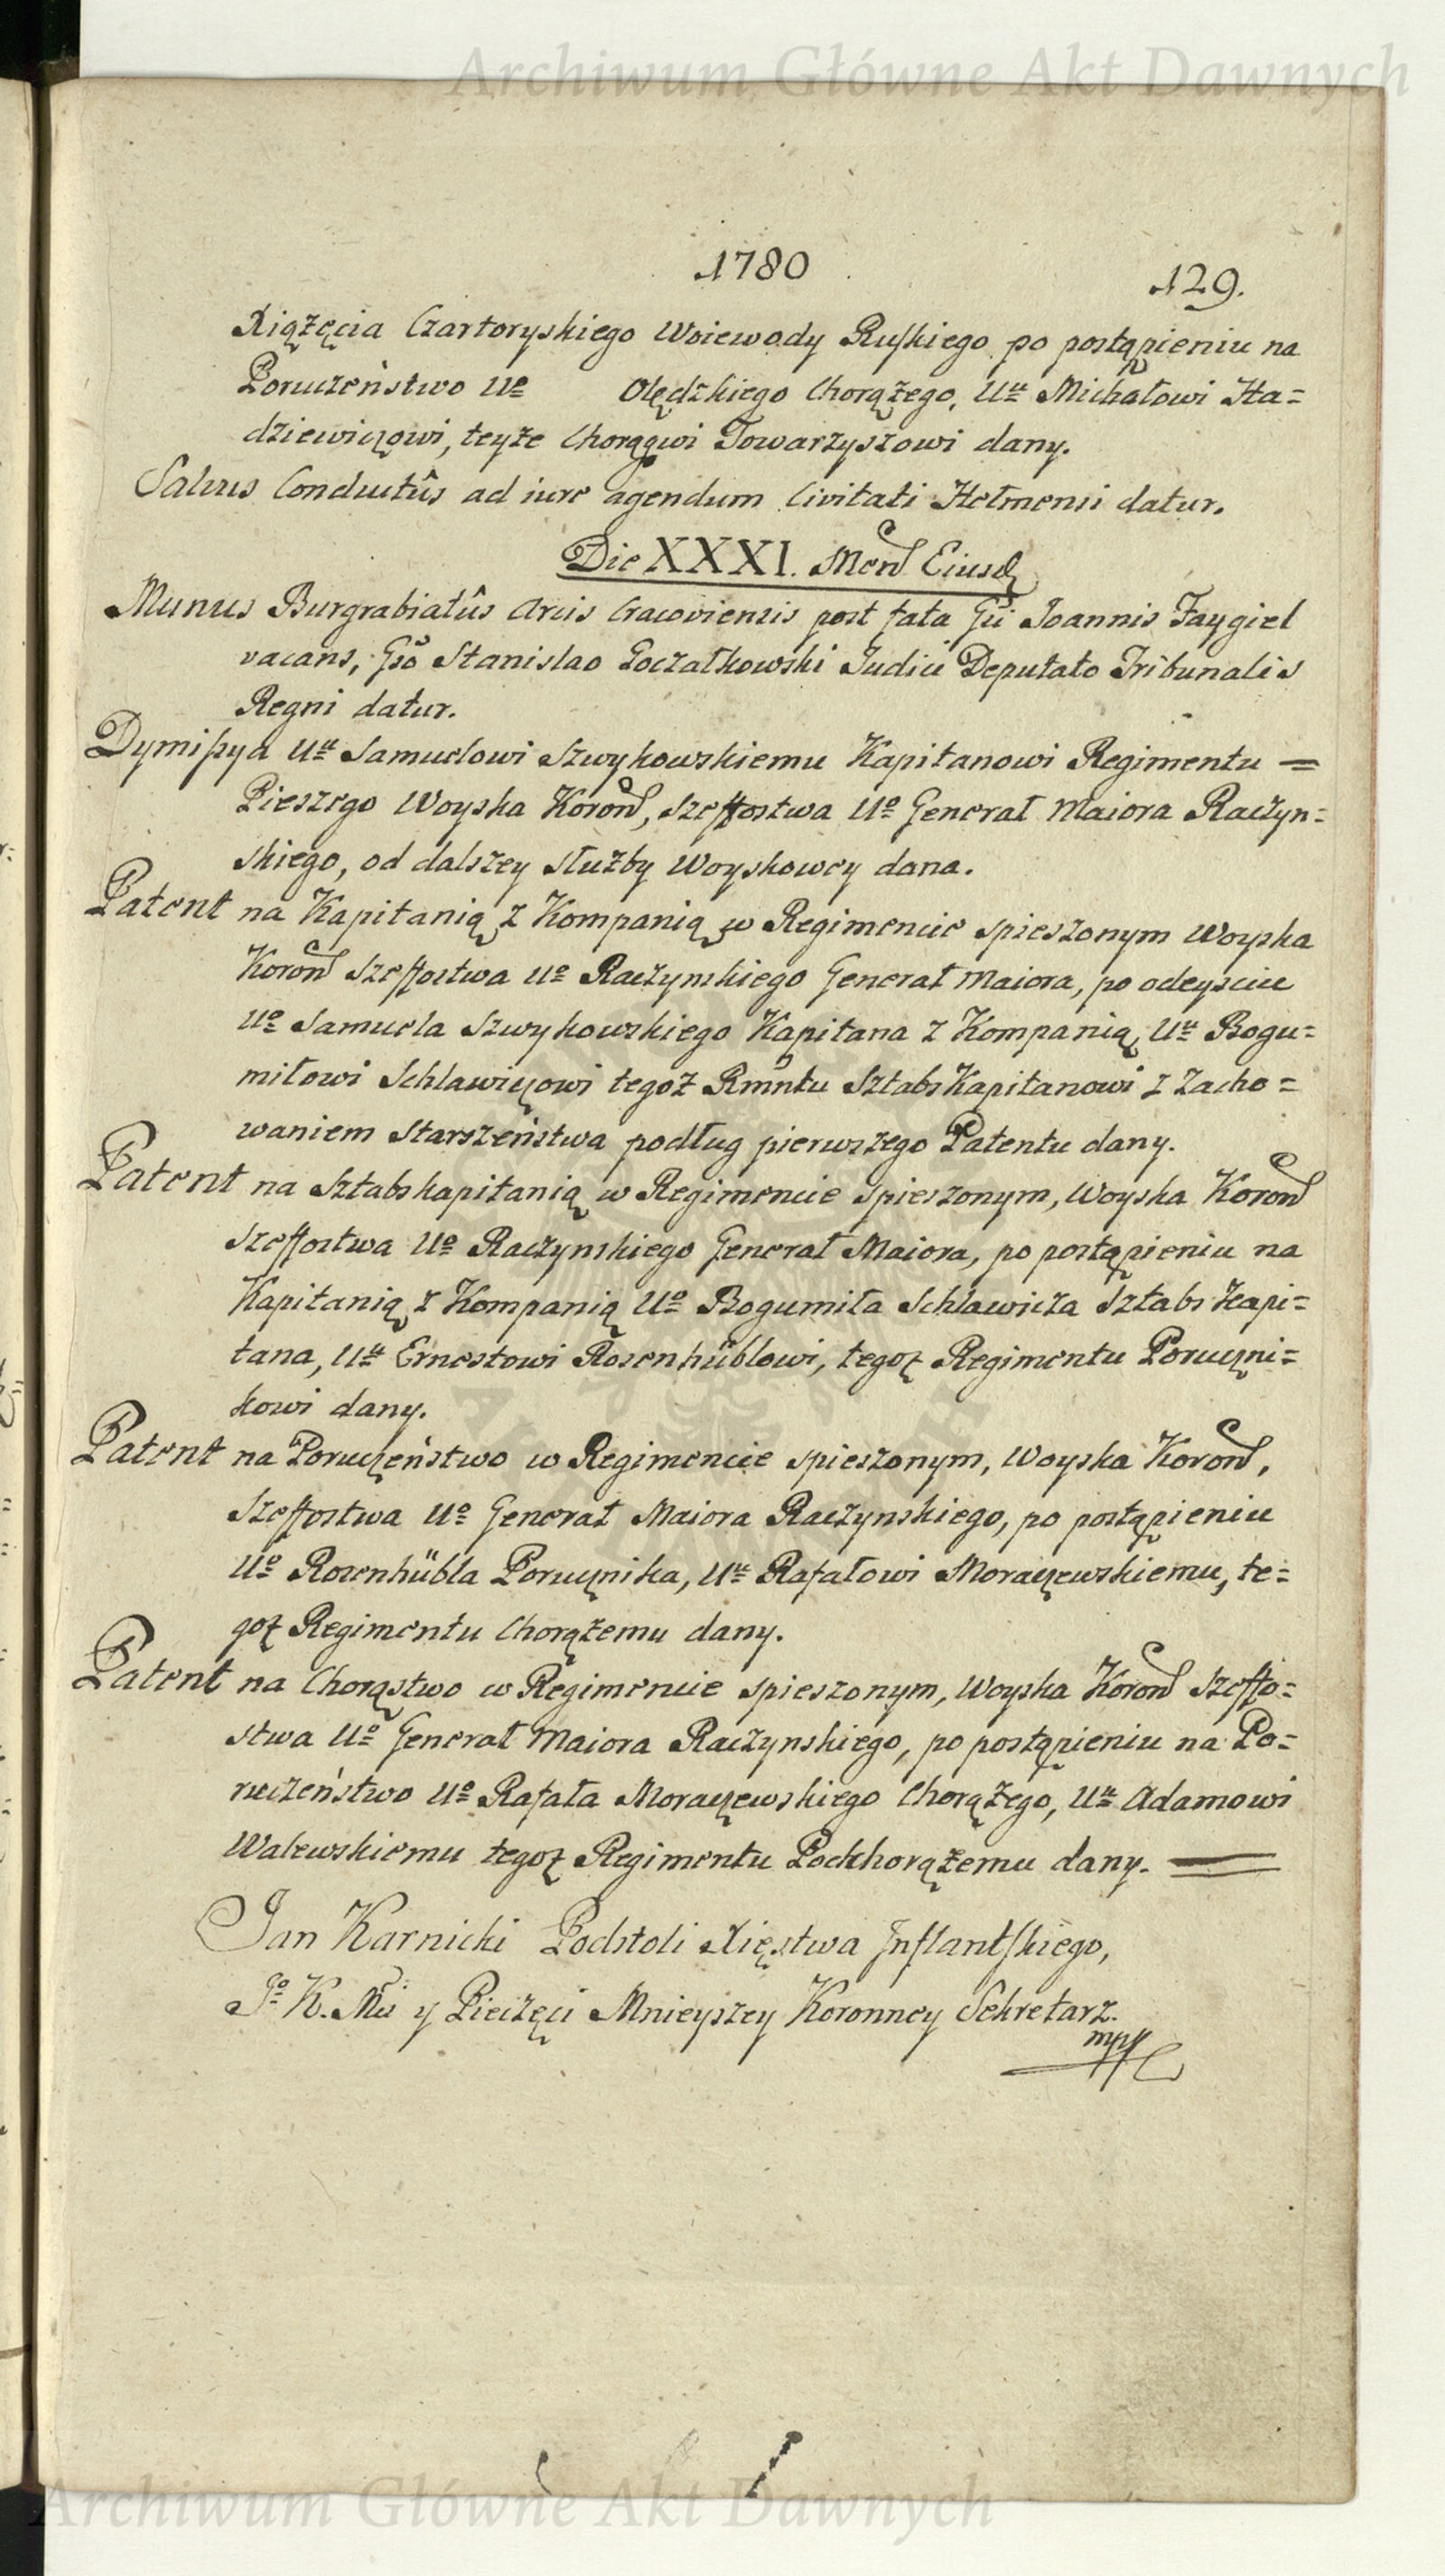 Archiwum Główne Akt Dawnych
1780
129.
Xiążęcia Czartoryskiego Woiewody Ruskiego po postąpieniu na
Poruczeństwo Uo Olędzkiego Chorążego, Uu Michałowi Ha=
dziewiczowi, teyże Chorągwi Towarzyszowi dany.
Salvus Conductûs ad iure agendum Civitati Hełmensi datur.
Die XXXI. Mens Eiusd
Munus Burgrabiatûs Arcis Cracoviensis post fata Gsi Joannis Faygiel
vacans, Gso Stanislao Poczałkowski Judici Deputato Tribunalis
Regni datur.
Dymissya Uu Samuelowi Szwykowskiemu Kapitanowi Regimentu =
Pieszego Woyska Koron, Szeffostwa Uo Generał Maiora Raczyn=
skiego, od dalszey służby Woyskowey dana.
Patent na Kapitanią z Kompanią w Regimencie spieszonym Woyska
Koron Szeffostwa Uo Raczynskiego Generał Maiora, po odeysciu
Uo Samuela Szwykowskiego Kapitana z Kompanią, Uu Bogu=
miłowi Schlawiczowi tegoż Rmntu SztabsKapitanowi z zacho=
waniem Starszeństwa podług pierwszego Patentu dany.
Patent na Sztabskapitanią w Regimencie spieszonym, Woyska Koron
Szeffostwa Uo Raczynskiego Generał Maiora, po postąpieniu na
Kapitanią z Kompanią Uo Bogumiła Schlawicza Sztabs Kapi=
tana, Uu Ernestowi Rosenhüblowi, tegoż Regimentu Poruczni=
kowi dany.
Patent na Poruczeństwo w Regimencie spieszonym, Woyska Koron,
Szeffostwa Uo Generał Maiora Raczynskiego, po postąpieniu
Uo Rosenhübla Porucznika, Uu Rafałowi Moraczewskiemu, te=
goż Regimentu Chorążemu dany.
Patent na Chorąstwo w Regimencie spieszonym, Woyska Koron Szeffo=
stwa Uo Generał Maiora Raczynskiego, po postąpieniu na Po=
ruczeństwo Uo Rafała Moraczewskiego Chorążego, Uu Adamowi
Walewskiemu tegoż Regimentu Podchorążemu dany.
Jan Karnicki Podstoli Xięstwa Inflantskiego,
Jo K. Mci y Pieczęci Mnieyszey Koronney Sekretarz.
mpp
Archiwum Główne Akt Dawnych